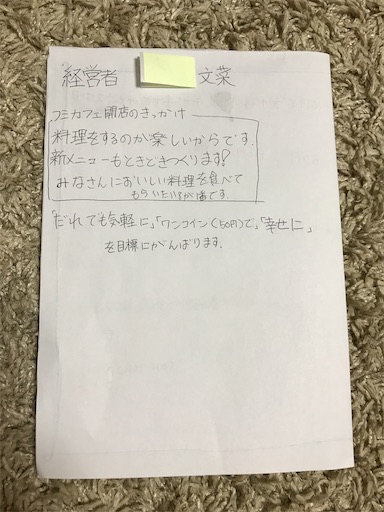 経営者 文菜
フミカフェ開店のきっかけ
料理をするのが楽しいからです。
新メニューもときどきつくります!
みなさんにおいしい料理を食べて
もらいたいです。
「だれでも気軽に」「ワンコイン(50円)で」「幸せに」
を目標にがんばります。